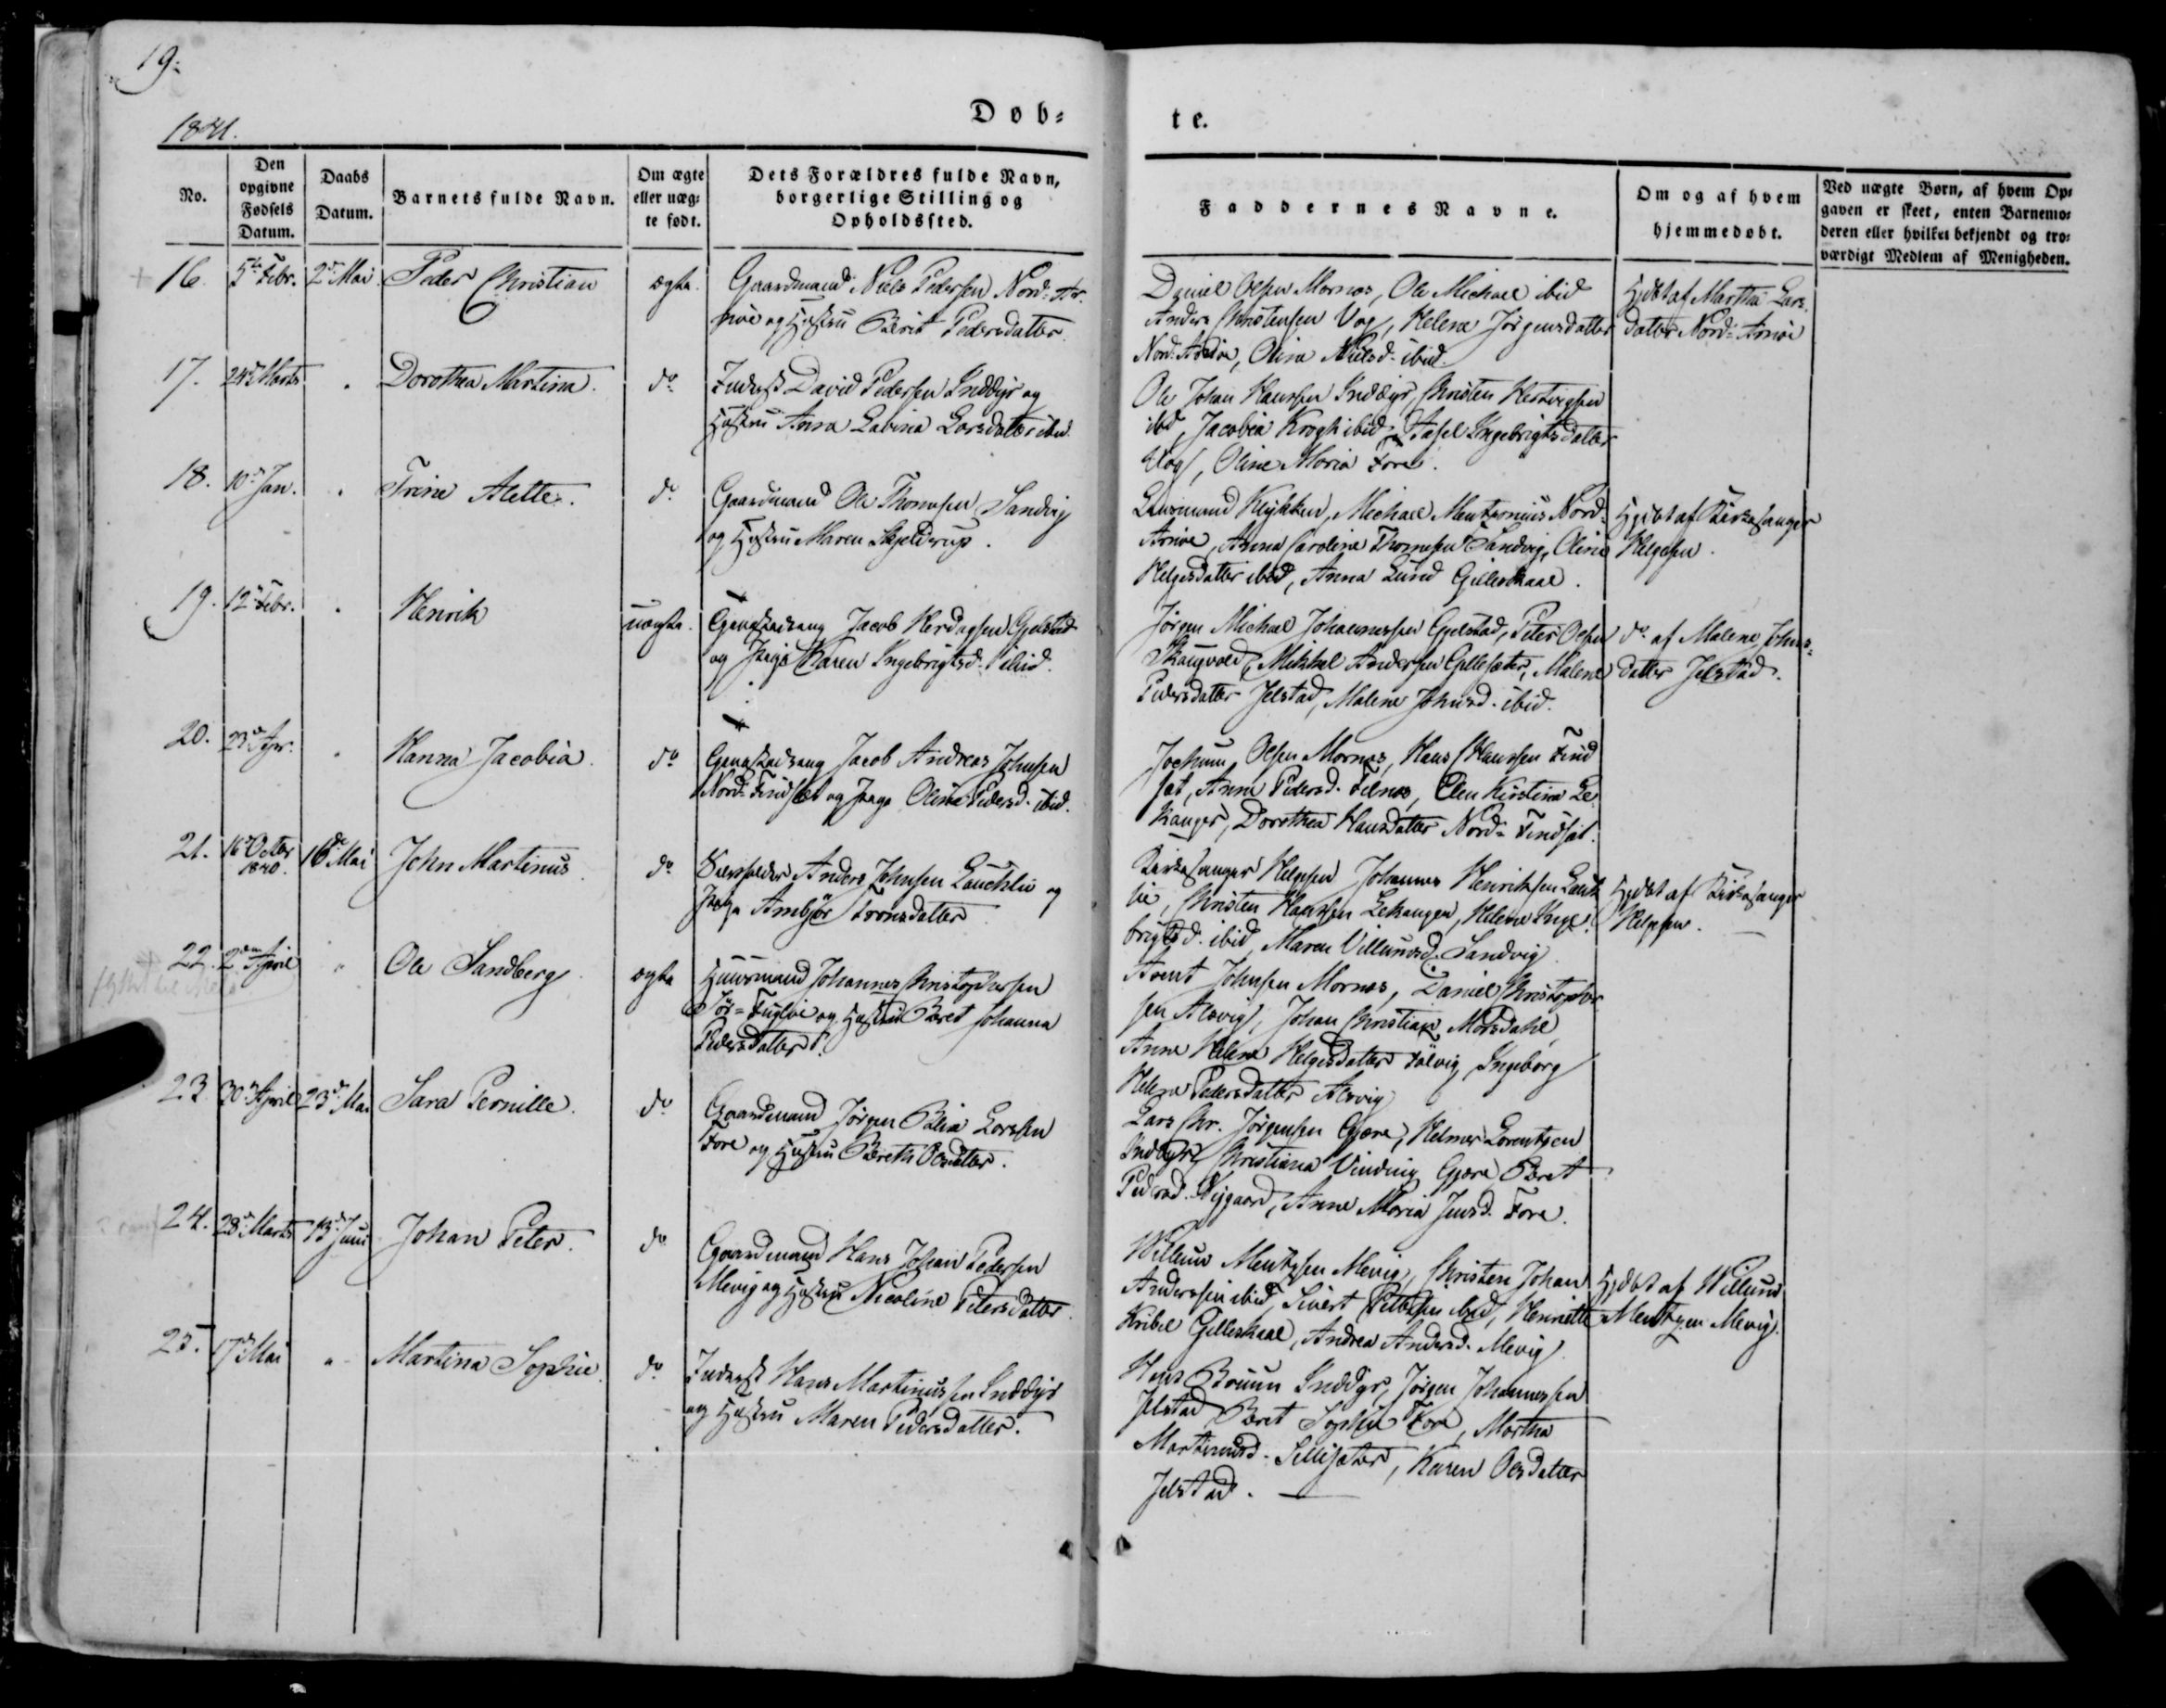 19.
1841.
Døb-
te.
No.
Den opgivne Fødsels Datum.
Daabs Datum.
Barnets fulde Navn.
Om ægte eller uæg- te født.
Dets Forældres fulde Navn, borgerlige Stilling og Opholdssted.
Faddernes Navne.
Om og af hvem hjemmedøbt.
Ved uægte Børn, af hvem Op- gaven er skeet, enten Barnemo- deren eller hvilket bekjendt og tro- værdigt Medlem af Menigheden.
16. 5te Febr. 2den Mai Peder Christian ægte.
Gaardmand Niels Pedersen Nord-Ar-
nøe og Hustru Berit Pedersdatter.
Daniel Olsen Mornæs, Ole Michael ibid
Anders Christensen Vag, Helena Jörgensdatter
Nord-Arnøe, Olina Nielsd. ibid.
Hjdøbt af Martha Lars-
datter Nord-Arnøe
17. 24de Marts " Dorothea Martina. do
Inderst David Pedersen Inddyr og
Hustru Anna Labina Larsdatter ibid.
Ole Johan Hanssen Inddyr, Christen Hertvigsen
ibd, Jacobia Krogh ibid, Ingebrigtsdatter
Vag, Oline Maria Fore.
18. 10de Jan. " Trine Alette. do
Gaardmand Ole Thomesen Sandvig
og Hustru Maren Skjelderup.
Lensmand Klykken, Michael Mentzonius Nord-
Arnøe, Anna Caroline Thomesen Sandvig, Olina
Helgesdatter ibid, Anna Lund Gilleskaal.
Hjdøbt af Kirkesanger
Helgesen.
19. 12te Febr. " Henrik uægte.
Jacob Herdagsen Gjelstad
og Pige Karen Ingebrigtsd. ibid.
Jörgen Michael Johannessen Gjelstad, Peter Olsen
Skaugvold, Mikkel Andersen Gillesæter, Malene
Pedersdatter Jelstad, Malene Johnsd. ibid.
do af Malene Johns-
datter Jelstad.
20. 23de Apr. " Hanna Jacobia. do
Jacob Andreas Johnsen
Nord-Findset og Pige Olina Pedersd. ibid.
Jochum Olsen Mornæs, Hans Hanssen Find
sæt, Anne Pedersd. Felnæs, Elen Kirstina Le
kanger, Dorothea Hansdatter Nord-Findsæt.
21. 16de Octbr 1840. 16de Mai John Martinus do
Anders Johnsen Lauchlie og
Pige Ambjør
Kirkesanger Helgesen Johannes Henriksen Lauk
lie, Christen Hanssen Lekanger, Helena Inge-
brigtsd. ibid, Maren Villumsd. Sandvig
Hjdøbt af Kirkesanger
Helgesen.
22. 2den April " Ole Sandberg. ægte
Huusmand Johannes Christophersen
Sör-Fugløe og Hustru Beret Johanna
Pedersdatter
Arent Johnsen Mornæs, Daniel Christopher
sen Alsvig, Johan Christian Morsdahl,
Anne Helene Helgesdatter Ingeborg
Helena Pedersdatter Alsvig
23. 30te April 23de Mai Sara Pernille. do
Gaardmand Jörgen Larssen
Fore og Hustru Bereth Olsdatter.
Lars Chr. Jörgensen Gjære, Helmer Lorentzen
Inddyr, Christiana Vinding Gjære, Beret
Pedersd. Nygaard, Anne Maria Jensd. Fore.
24. 28de Marts 13de Juni Johan Peter. do
Gaardmand Hans Johan Pedersen
Mevig og Hustru Nicoline Petersdatter.
Willum Mentzsen Mevig, Christen Johan
Anderssen ibid, Sivert ibid, Henriette
Kribel Gilleskaal, Andrea Andersd. Mevig.
Hjdøbt af Willum
Mentzen Mevig.
25. 17de Mai " Martina Sophie. do
Inderst Hans Martinussen Inddyr
og Hustru Maren Pedersdatter.
Hans Bruun Inddyr, Jörgen Johannessen
Jelstad, Beret Sophia Fore, Martha
Martinusd. Sillesæter, Karen Olsdatter
Jelstad.